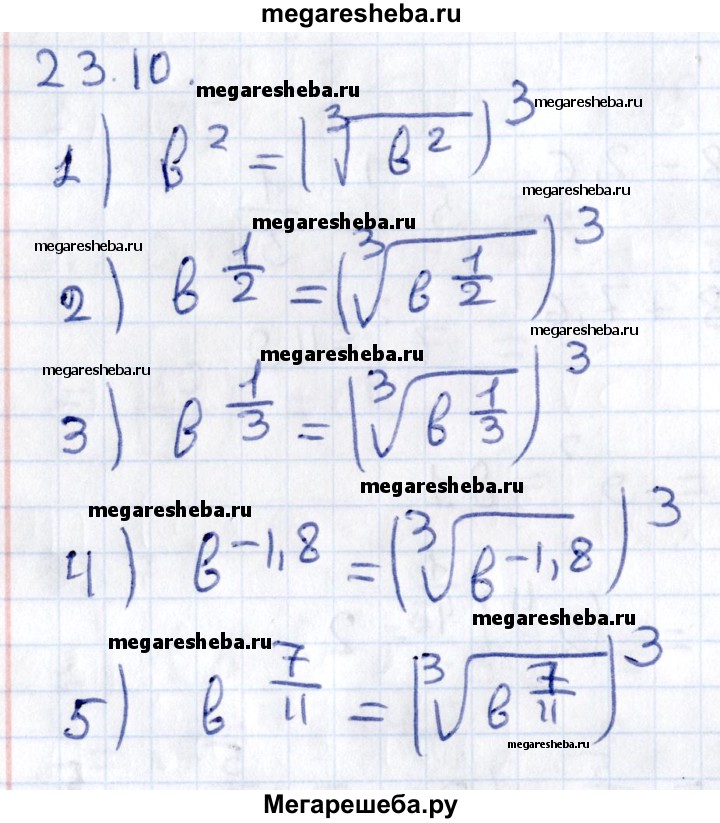 megaresheba.ru
23.10.
megaresheba.ru
megaresheba.ru
1) в² = (∛(в²))³
megaresheba.ru
megaresheba.ru
megaresheba.ru
2) в^(1/2) = (∛(в^(1/2)))³
megaresheba.ru
megaresheba.ru
megaresheba.ru
3) в^(1/3) = (∛(в^(1/3)))³
megaresheba.ru
megaresheba.ru
4) в^(-1,8) = (∛(в^(-1,8)))³
megaresheba.ru
megaresheba.ru
5) в^(7/11) = (∛(в^(7/11)))³
megaresheba.ru
Мегарешеба.ру